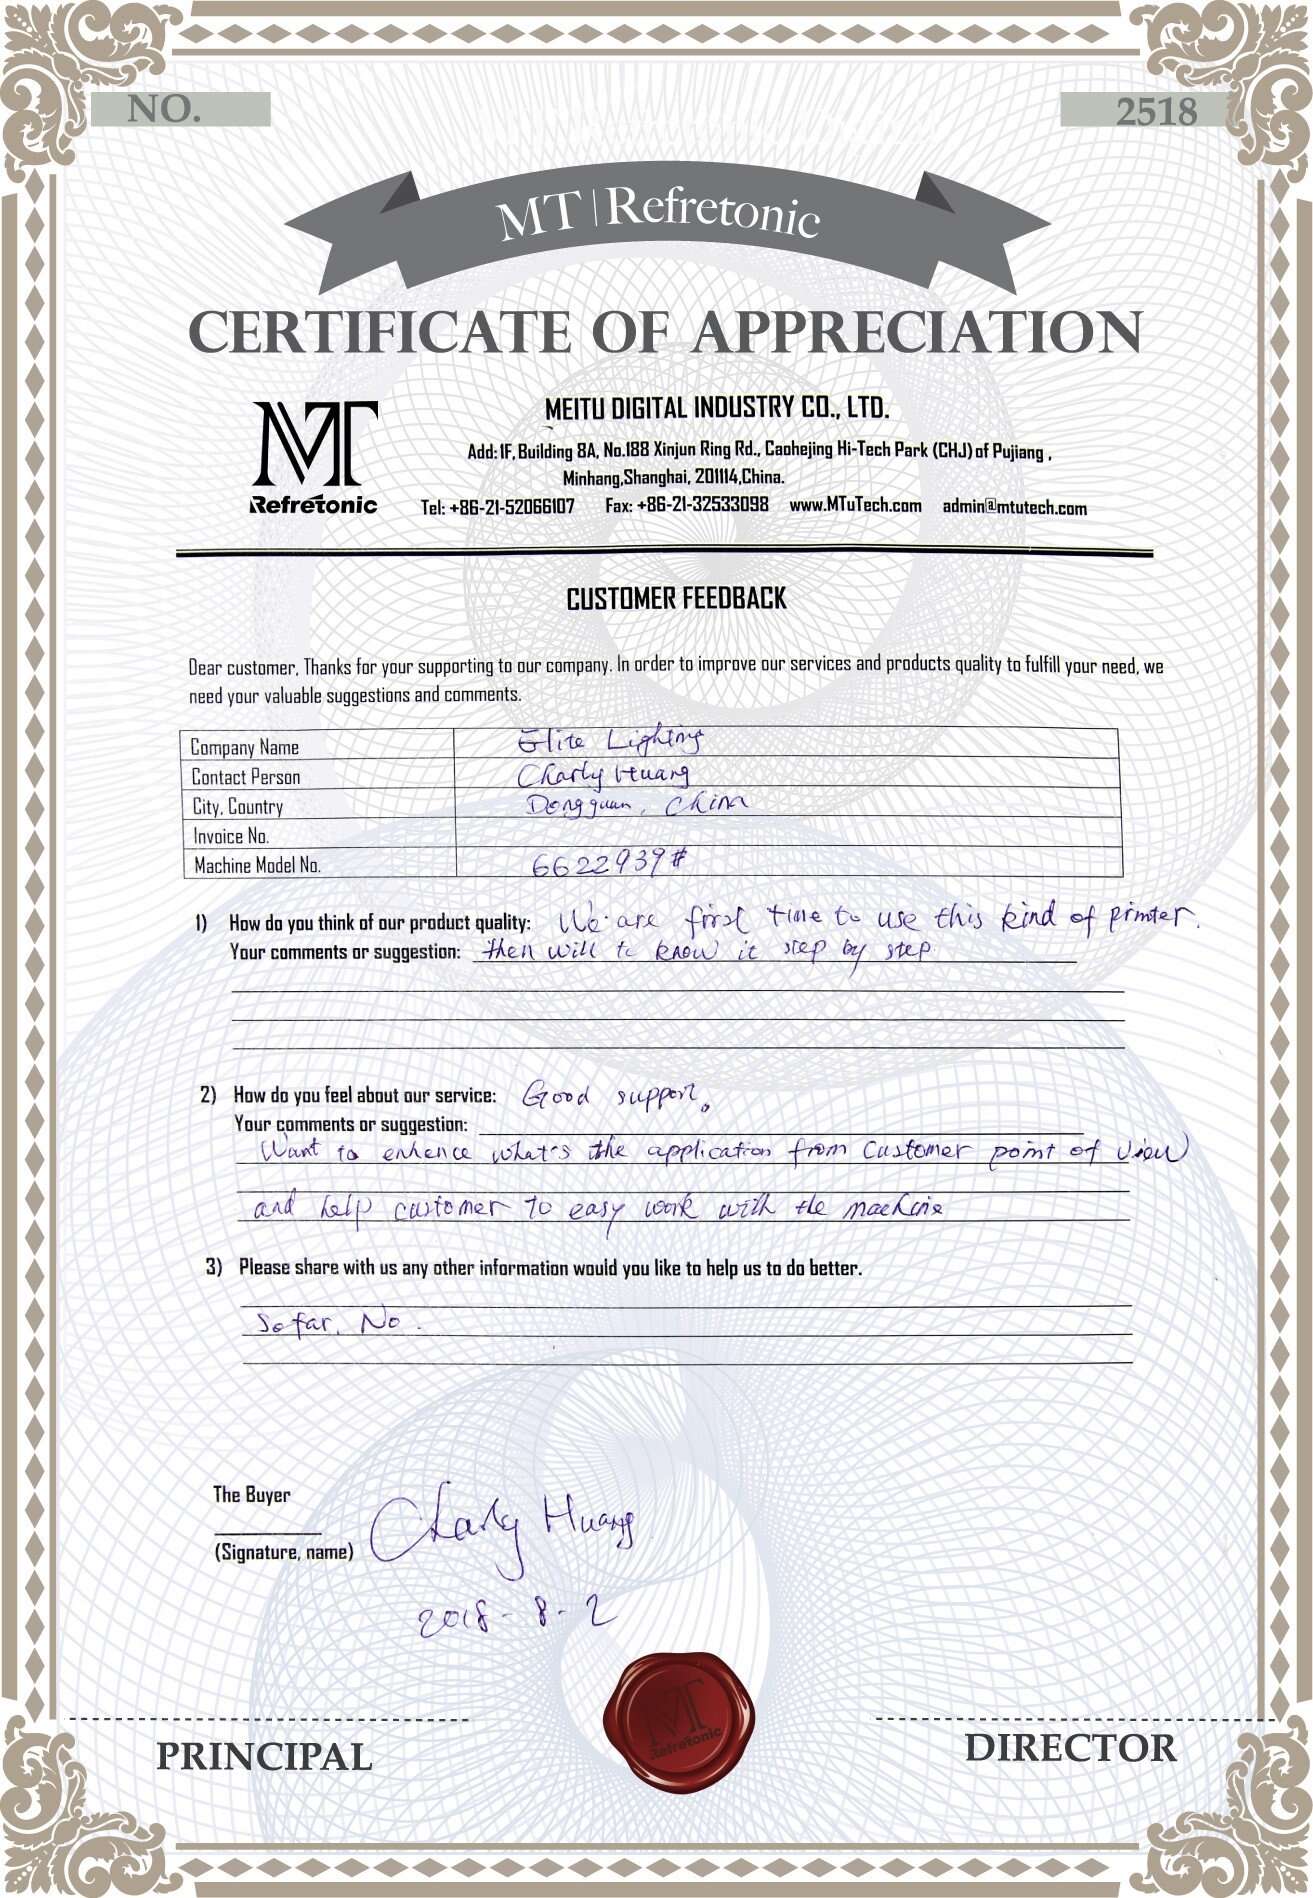 NO.
2518
MT | Refretonic
CERTIFICATE OF APPRECIATION
MT
Refretonic
MEITU DIGITAL INDUSTRY CO., LTD.
Add: 1F, Building 8A, No.188 Xinjun Ring Rd., Caohejing Hi-Tech Park (CHJ) of Pujiang ,
Minhang,Shanghai, 201114,China.
Tel: +86-21-52066107 Fax: +86-21-32533098 www.MTuTech.com admin@mtutech.com
CUSTOMER FEEDBACK
Dear customer, Thanks for your supporting to our company. In order to improve our services and products quality to fulfill your need, we
need your valuable suggestions and comments.
Company Name Elite Lighting
Contact Person Charly Huang
City, Country Dongguan, China
Invoice No.
Machine Model No. 6622939#
1) How do you think of our product quality: We are first time to use this kind of printer.
Your comments or suggestion: then will to know it step by step
2) How do you feel about our service: Good support.
Your comments or suggestion:
Want to enhence what's the application from Customer point of view
and help customer to easy work with the machine
3) Please share with us any other information would you like to help us to do better.
So far, No.
The Buyer
(Signature, name) Charly Huang
2018-8-2
MT
Refretonic
PRINCIPAL
DIRECTOR